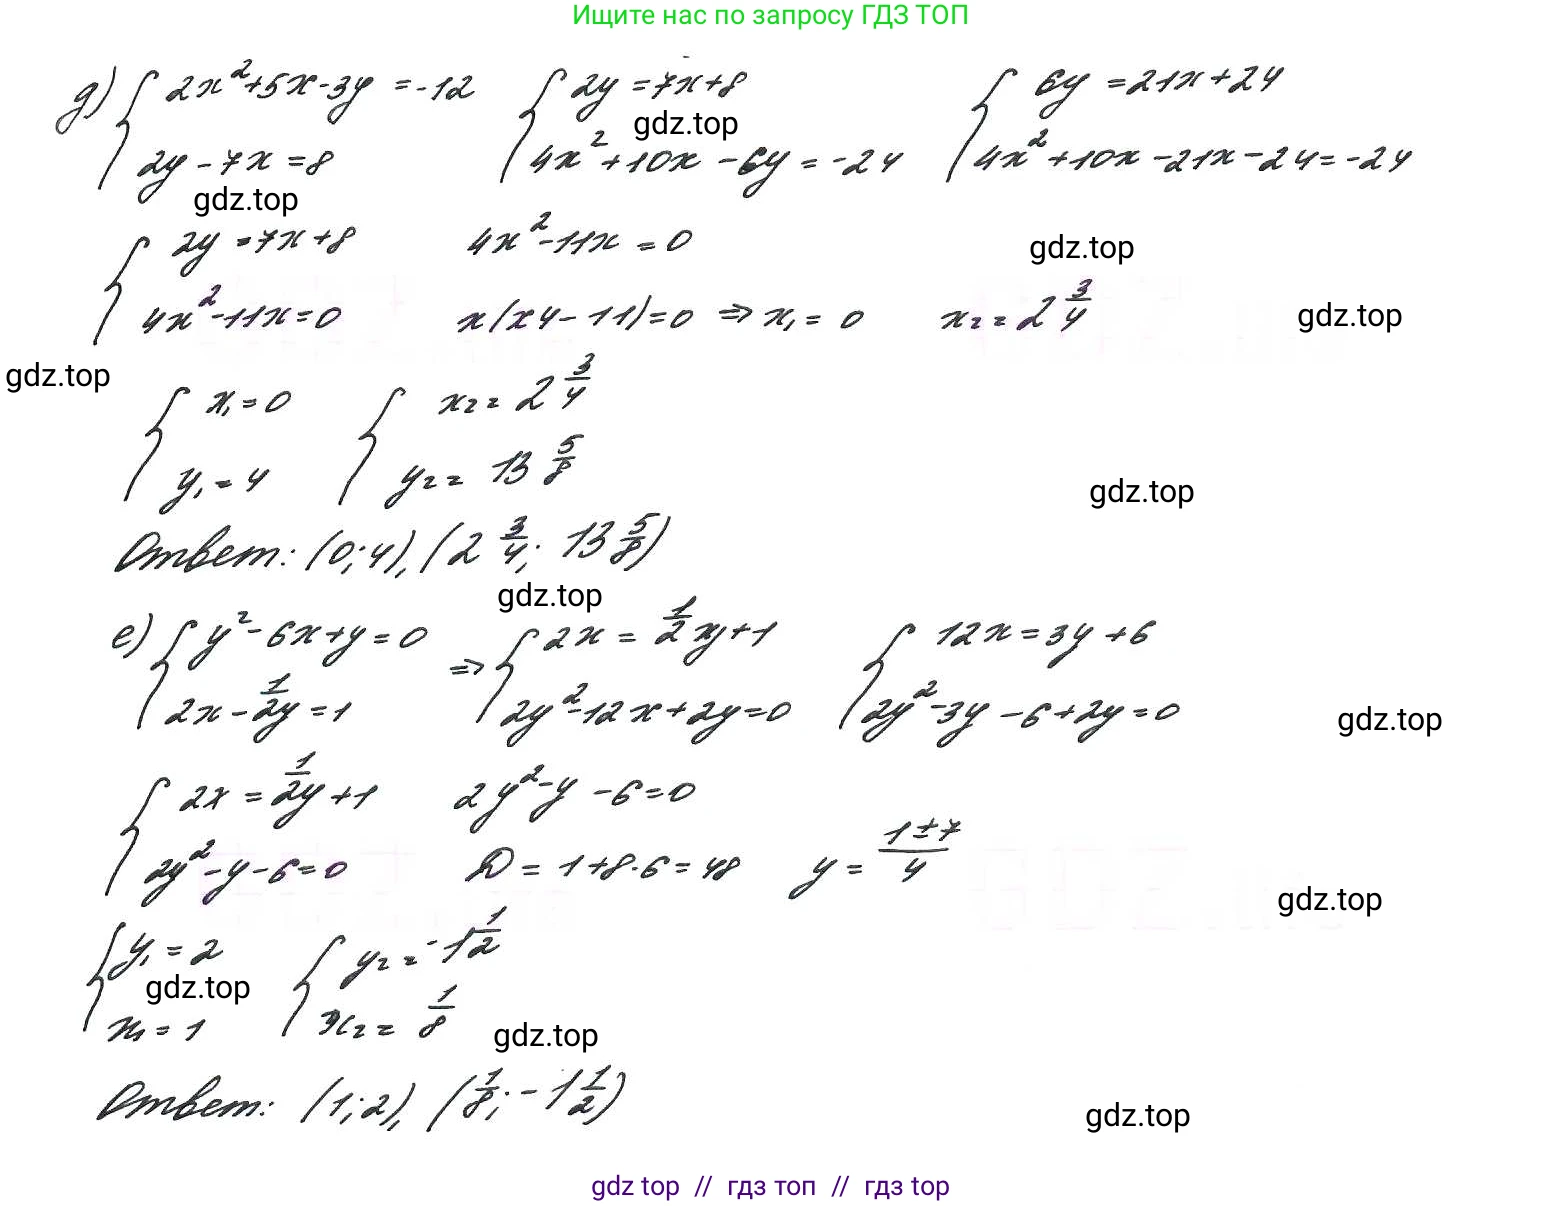 Ищите нас по запросу ГДЗ ТОП
д) { 2x²+5x-3y = -12 { 2y = 7x+8 { 6y = 21x+24
gdz.top
2y - 7x = 8 4x²+10x - 6y = -24 4x²+10x -21x -24 = -24
gdz.top
{ 2y = 7x+8 4x²-11x = 0
gdz.top
4x²-11x=0 x(x4-11)=0 => x₁ = 0 x₂ = 2 3/4
gdz.top
gdz.top
{ x₁ = 0 { x₂ = 2 3/4
y₁ = 4 y₂ = 13 5/8
gdz.top
Ответ: (0;4), (2 3/4; 13 5/8)
gdz.top
е) { y²-6x+y = 0 => { 2x = 1/2 y+1 { 12x = 3y+6
2x - 1/2y = 1 2y²-12x+2y=0 2y²-3y-6+2y=0
gdz.top
{ 2x = 1/2y+1 2y²-y-6=0
2y²-y-6=0 D = 1+8·6=48 y = 1±7/4
gdz.top
{ y₁ = 2 { y₂ = -1 1/2
gdz.top
x₁ = 1 x₂ = 1/8
gdz.top
Ответ: (1;2), (1/8; -1 1/2)
gdz.top
gdz top // гдз топ // гдз top